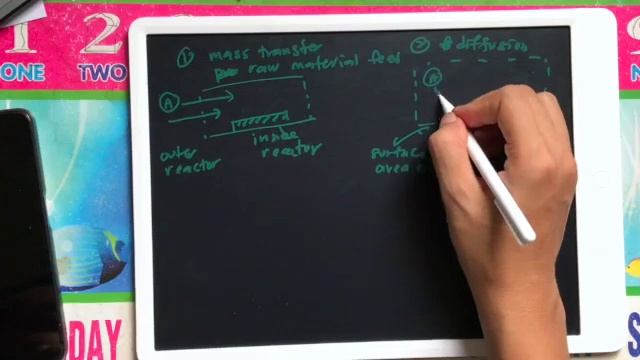 1
ONE
2
TWO
DAY
① mass transfer
raw material feed
A
outer
reactor
inside
reactor
② diffusion
A
area
S